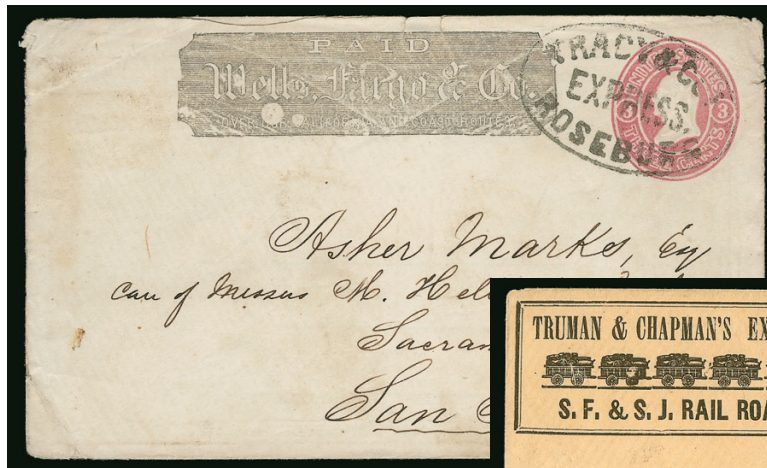 PAID
Wells, Fargo & Co.
OVER OUR CALIFORNIA AND COAST ROUTES
TRACY & CO'S
EXPRESS,
ROSEBURG
UNITED STATES
3 3
THREE CENTS
Asher Marks, Esq
Care of Messrs M. Hel
Sacram
San
TRUMAN & CHAPMAN'S EX
S. F. & S. J. RAIL ROA